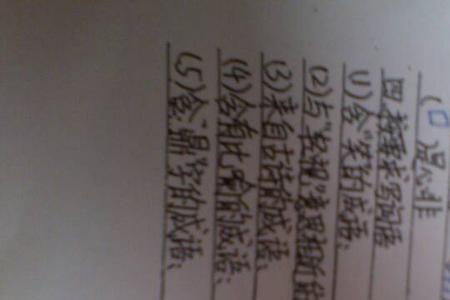 四、按要求写词语
(1)含“笑”的成语:
(2)与“轻视”意思相近的
(3)来自古诗的成语:
(4)含有比喻的成语:
(5)含“鼎”字的成语: